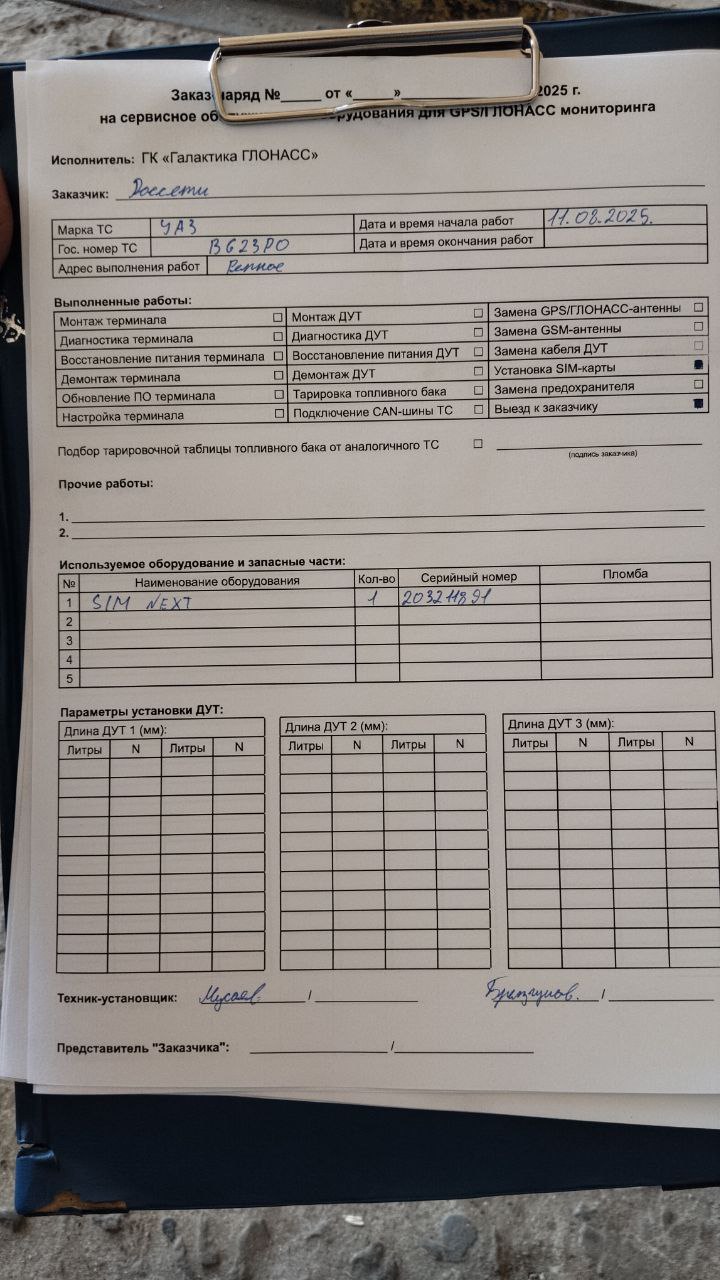 Заказ-наряд №_____ от «_____»__________ 2025 г.
на сервисное оборудования для GPS/ГЛОНАСС мониторинга
Исполнитель: ГК «Галактика ГЛОНАСС»
Заказчик: Россети
Марка ТС УАЗ Дата и время начала работ 11.08.2025.
Гос. номер ТС В623РО Дата и время окончания работ
Адрес выполнения работ Репное
Выполненные работы:
Монтаж терминала ☐ Монтаж ДУТ ☐ Замена GPS/ГЛОНАСС-антенны ☐
Диагностика терминала ☐ Диагностика ДУТ ☐ Замена GSM-антенны ☐
Восстановление питания терминала ☐ Восстановление питания ДУТ ☐ Замена кабеля ДУТ ☐
Демонтаж терминала ☐ Демонтаж ДУТ ☐ Установка SIM-карты ■
Обновление ПО терминала ☐ Тарировка топливного бака ☐ Замена предохранителя ☐
Настройка терминала ☐ Подключение CAN-шины ТС ☐ Выезд к заказчику ■
Подбор тарировочной таблицы топливного бака от аналогичного ТС ☐
(подпись заказчика)
Прочие работы:
1.
2.
Используемое оборудование и запасные части:
№ Наименование оборудования Кол-во Серийный номер Пломба
1 SIM NEXT 1
2
3
4
5
Параметры установки ДУТ:
Длина ДУТ 1 (мм): Длина ДУТ 2 (мм): Длина ДУТ 3 (мм):
Литры N Литры N Литры N Литры N Литры N Литры N
Техник-установщик: Мусаев. / /
Представитель "Заказчика": /